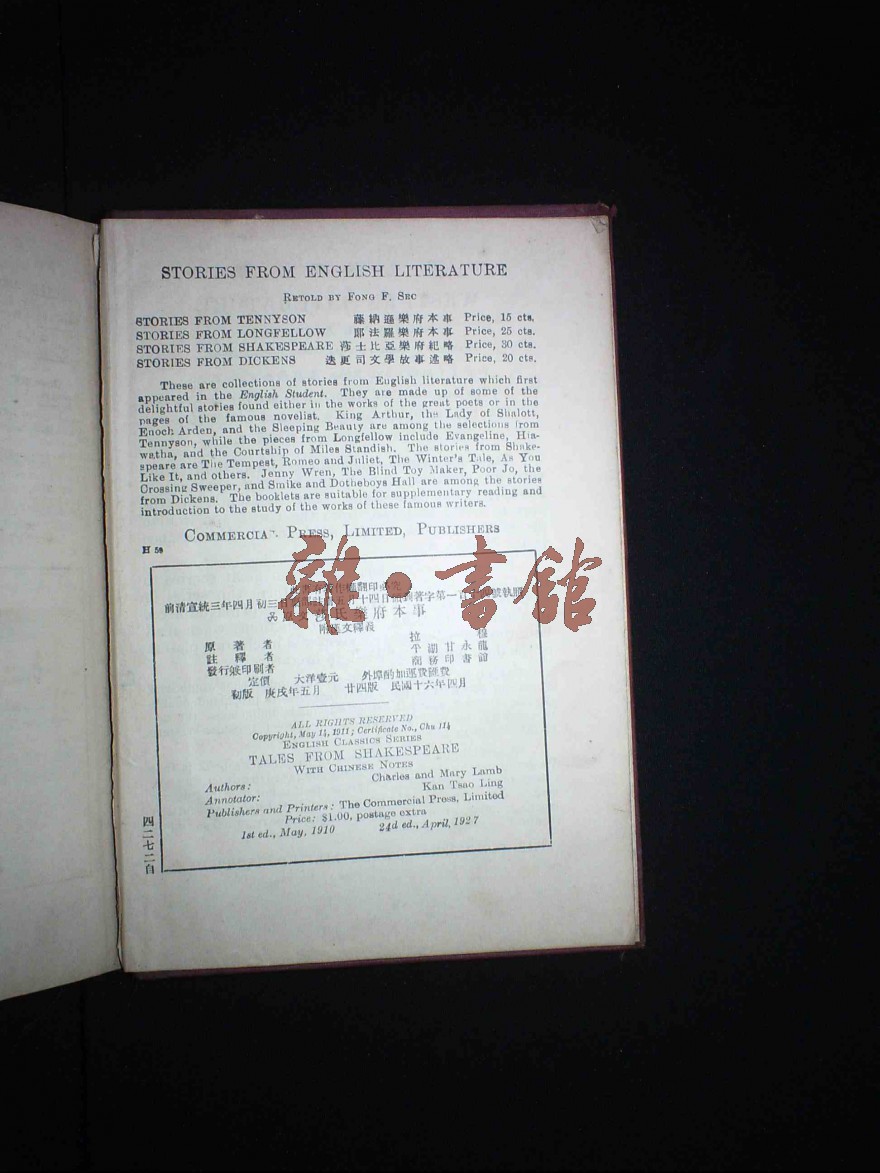 STORIES FROM ENGLISH LITERATURE
RETOLD BY FONG F. SEC
STORIES FROM TENNYSON 藤納遜樂府本事 Price, 15 cts.
STORIES FROM LONGFELLOW 耶法羅樂府本事 Price, 25 cts.
STORIES FROM SHAKESPEARE 莎士比亞樂府紀略 Price, 30 cts.
STORIES FROM DICKENS 迭更司文學故事述略 Price, 20 cts.
These are collections of stories from English literature which first
appeared in the English Student. They are made up of some of the
delightful stories found either in the works of the great poets or in the
pages of the famous novelist. King Arthur, the Lady of Shalott,
Enoch Arden, and the Sleeping Beauty are among the selections from
Tennyson, while the pieces from Longfellow include Evangeline, Hia-
watha, and the Courtship of Miles Standish. The stories from Shake-
speare are The Tempest, Romeo and Juliet, The Winter's Tale, As You
Like It, and others. Jenny Wren, The Blind Toy Maker, Poor Jo, the
Crossing Sweeper, and Smike and Dotheboys Hall are among the stories
from Dickens. The booklets are suitable for supplementary reading and
introduction to the study of the works of these famous writers.
COMMERCIAL PRESS, LIMITED, PUBLISHERS
H 59
書館
翻印必究
前清宣統三年四月初三日 十四日 著字第一百 號執照
氏樂府本事
漢文釋義
原著者 拉穆
註釋者 平湖甘永龍
發行兼印刷者 商務印書館
定價 大洋壹元 外埠酌加運費匯費
初版 庚戌年五月 廿四版 民國十六年四月
ALL RIGHTS RESERVED
Copyright, May 14, 1911; Certificate No., Chu 114
ENGLISH CLASSICS SERIES
TALES FROM SHAKESPEARE
WITH CHINESE NOTES
Authors: Charles and Mary Lamb
Annotator: Kan Tsao Ling
Publishers and Printers: The Commercial Press, Limited
Price: $1.00, postage extra
1st ed., May, 1910 24d ed., April, 1927
四二七二自